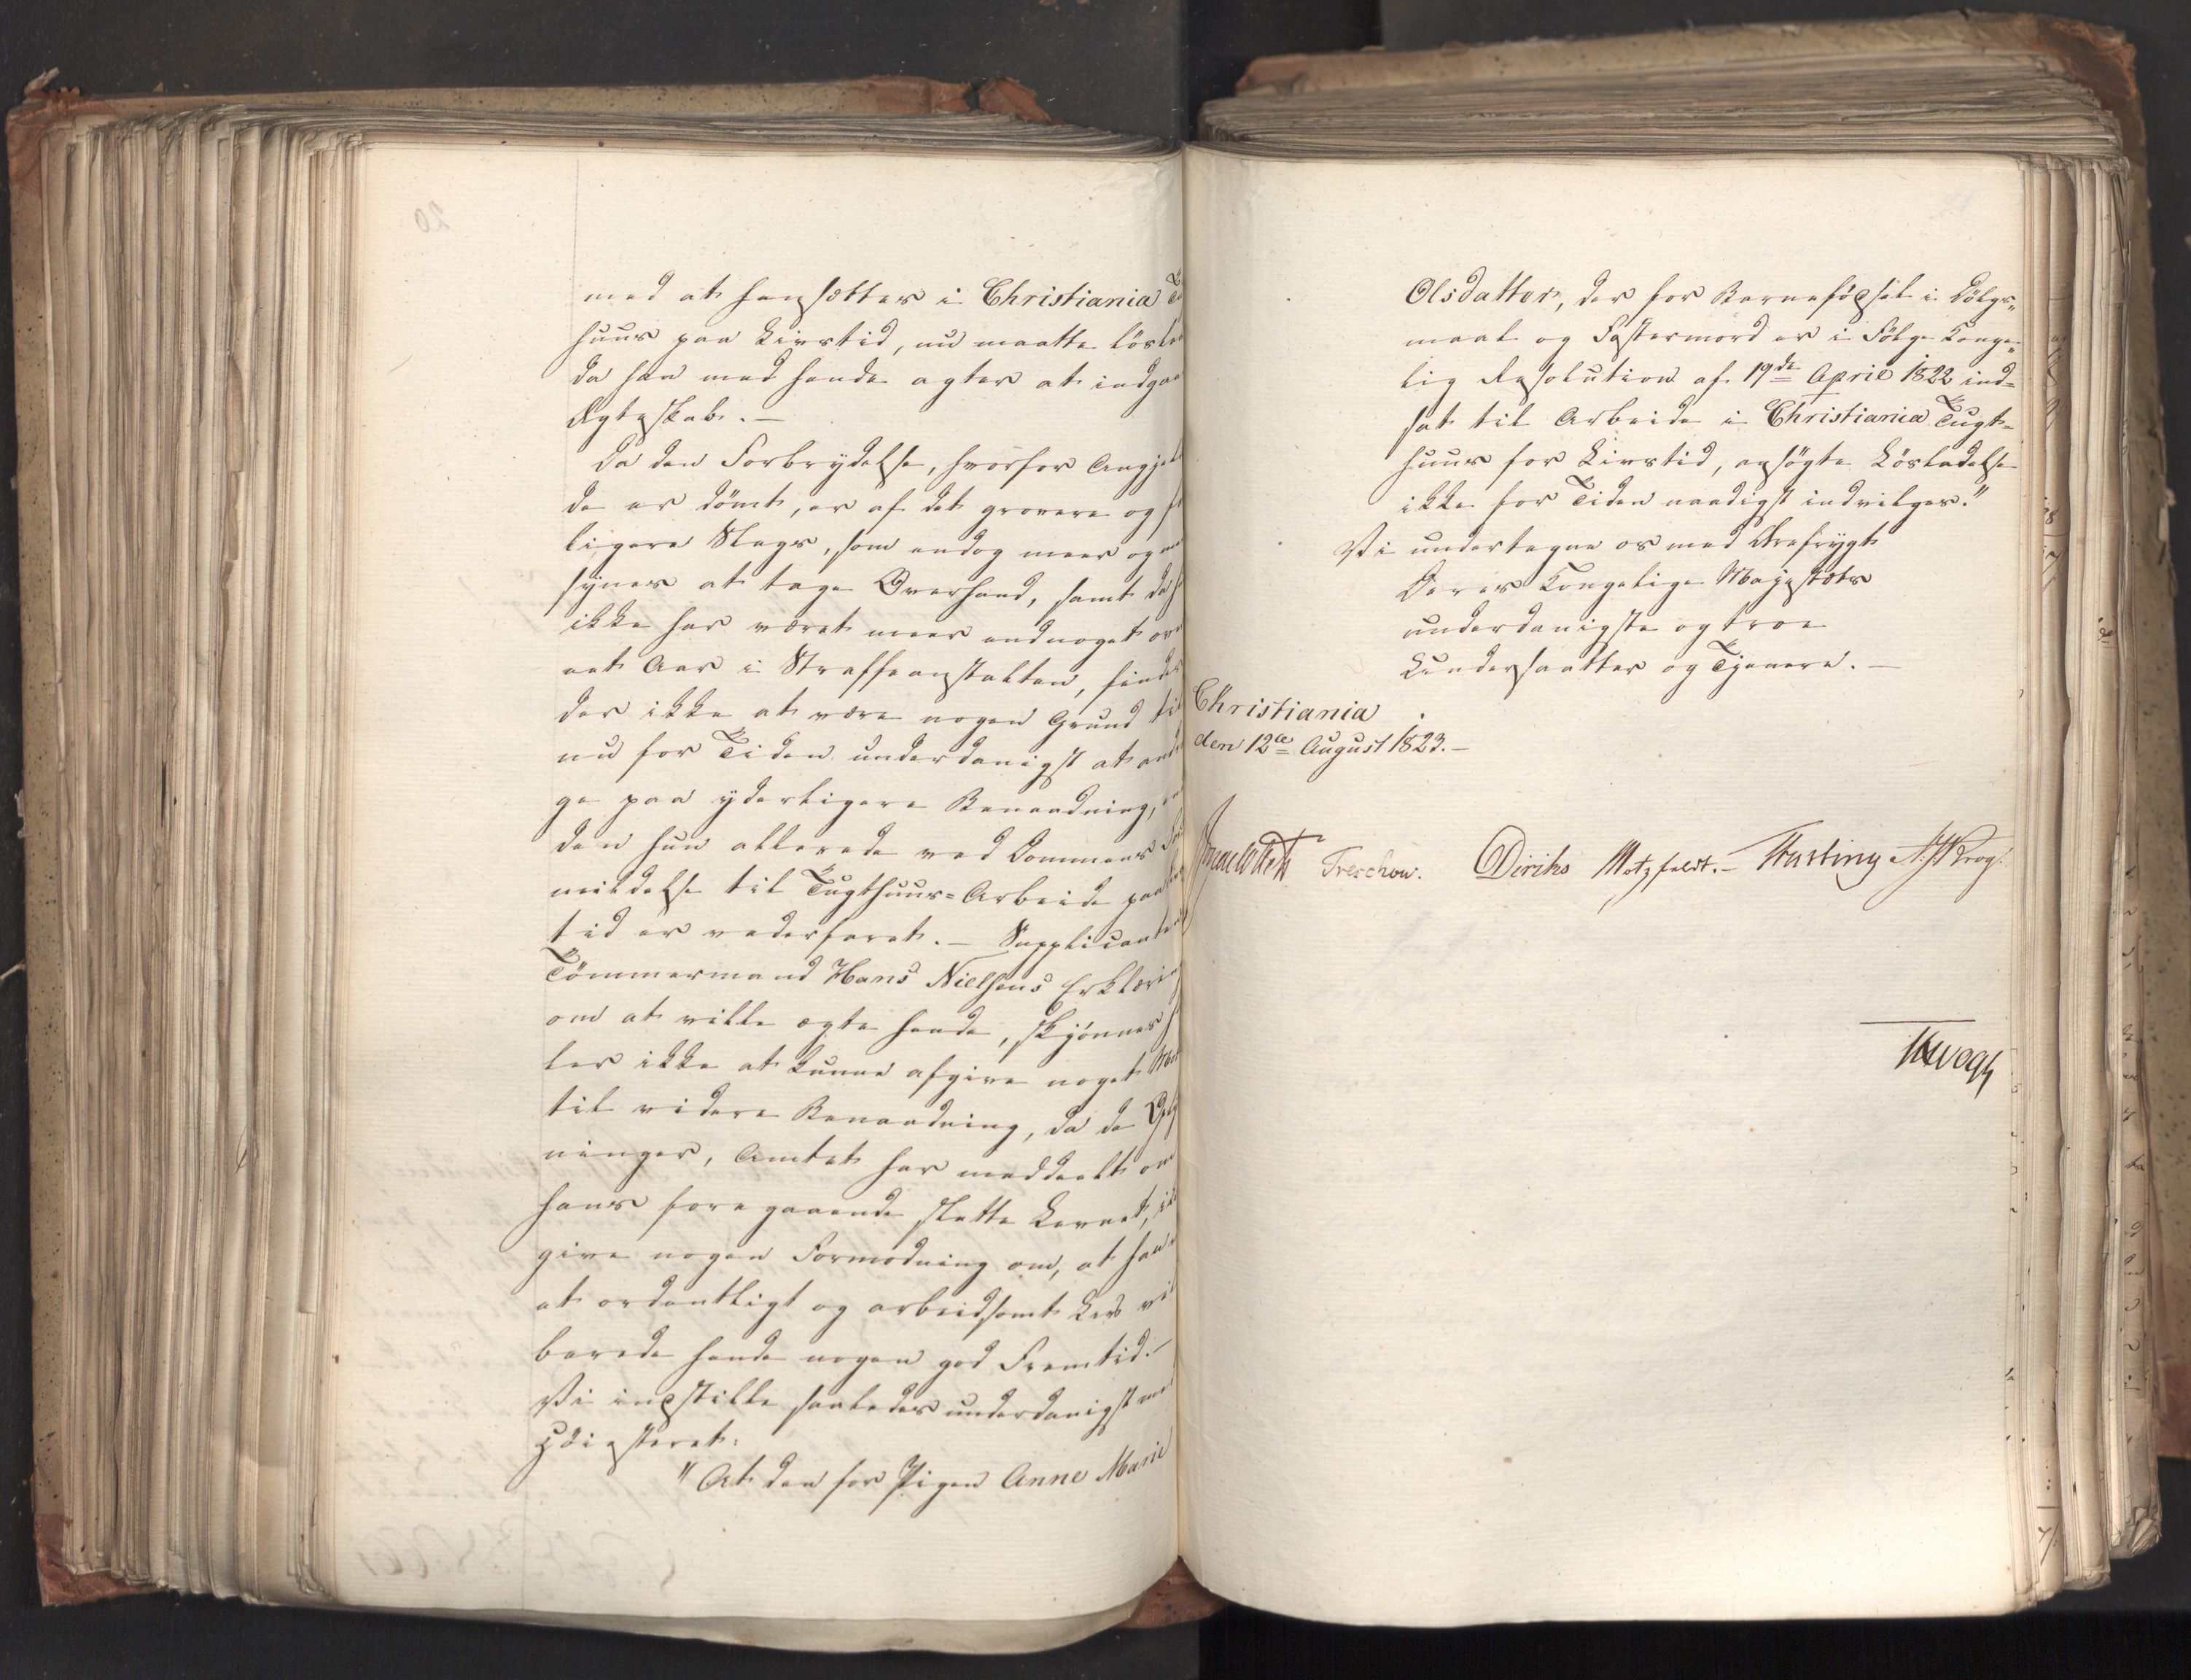 med at hensættes i Christiania
huus paa Livstid, nu maatte lösla
da han med hende agter at indgaa
Ægteskab. —
Da den Forbrydelse, hvorfor Angjel
de er dömt, er af det grovere og
ligere Slags, som endog meer og
synes at tage Overhaand, samt da
ikke har været meer end noget ov
eet Aar i Straffeanstalten, finde
der ikke at være nogen Grund til
nu for Tiden underdanigst at
ge paa yderligere Benaadning,
den hun allerede ved Dommens
mildelse til Tugthuus-Arbeide paa
tid er vederfaret. — Supplicante
Tömmermand Hans Nielsens Erklæri
om at ville ægte hende, skjönnes
ler ikke at kunne afgive noget
til videre Benaadning, da de
ninger, Amtet har meddeelt om
hans foregaaende slette Levnet,
give nogen Formodning om, at han
et ordentligt og arbeidsomt Lev
berede hende nogen god Fremtid. —
Vi indstille saaledes underdanigst
"At den for Pigen Anne Marie
Olsdatter, der for Barnefödsel i Dölgs„
maal og Fostermord er i Fölge Konge„
lig Resolution af 19de April 1822 ind=
sat til Arbeide i Christiania Tugt=
huus for Livstid, ansögte Lösladelse
ikke for Tiden naadigst indvilges."
Vi undertegne os med Ærefrygt
Deres Kongelige Majestæts
underdanigste og troe
Undersaatter og Tjenere. —
Christiania
den 12te August 1823. —
Treschow. Diriks Motzfeldt. — Fasting